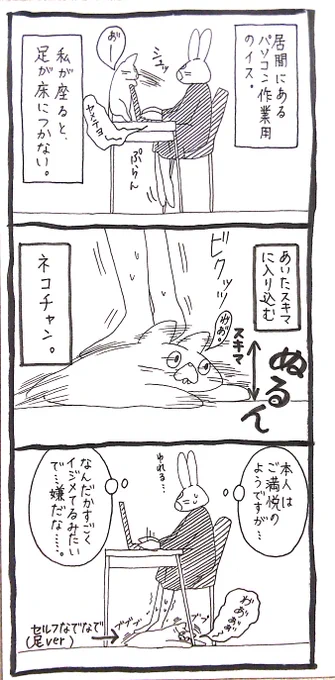 居間にある
パソコン作業用
のイス。
シュッ
お゛ー
ヤメテヨ
ぷらん
私が座ると、
足が床につかない。
あいたスキマ
に入り込む
ビクッッ
わ゛あ゛。
スキマ
ぬるん
ネコチャン。
本人は
ご満悦の
ようですが…
ゆれる…
なんだかすごく
イジメてるみたい
で…嫌だな…。
ブブブ
ブブブ
わ゛あ゛あ゛あ゛
セルフなでなで
(足ver)